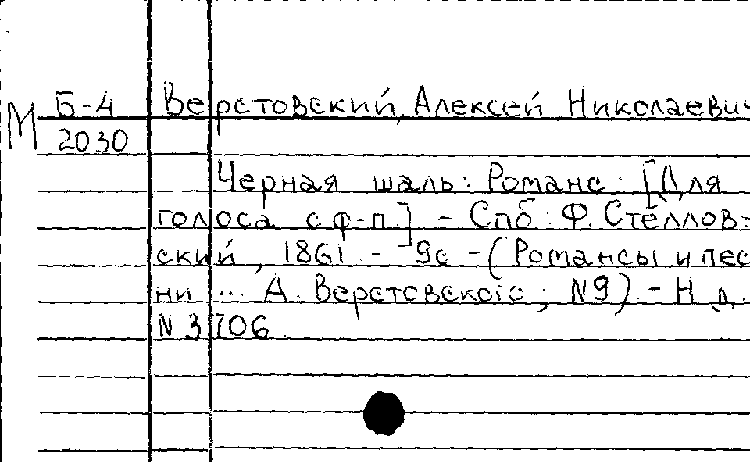 М Б-4 Верстовский, Алексей Николаевич
2030
Черная шаль: Романс: [Для
голоса с ф-п.] - Спб: Ф. Стеллов-
ский, 1861 - 9с - (Романсы и пес
ни ... А. Верстовского; N9) - Н д.
N 3706